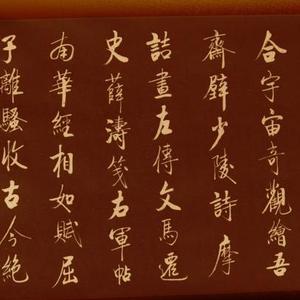 合宇宙奇觀繪吾
齋壁少陵詩摩
詰畫左傳文馬遷
史薛濤箋右軍帖
南華經相如賦屈
子離騷收古今絕